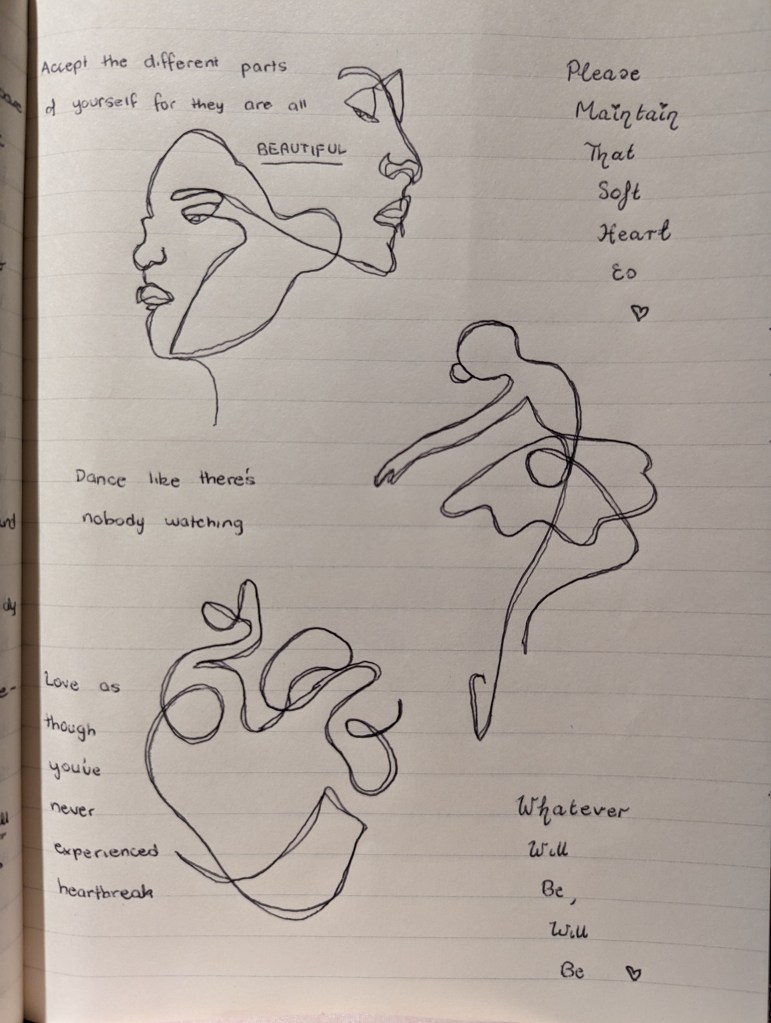 Accept the different parts
of yourself for they are all
BEAUTIFUL
Please
Maintain
That
Soft
Heart
Eo
Dance like there's
nobody watching
Love as
though
you've
never
experienced
heartbreak
Whatever
Will
Be,
Will
Be